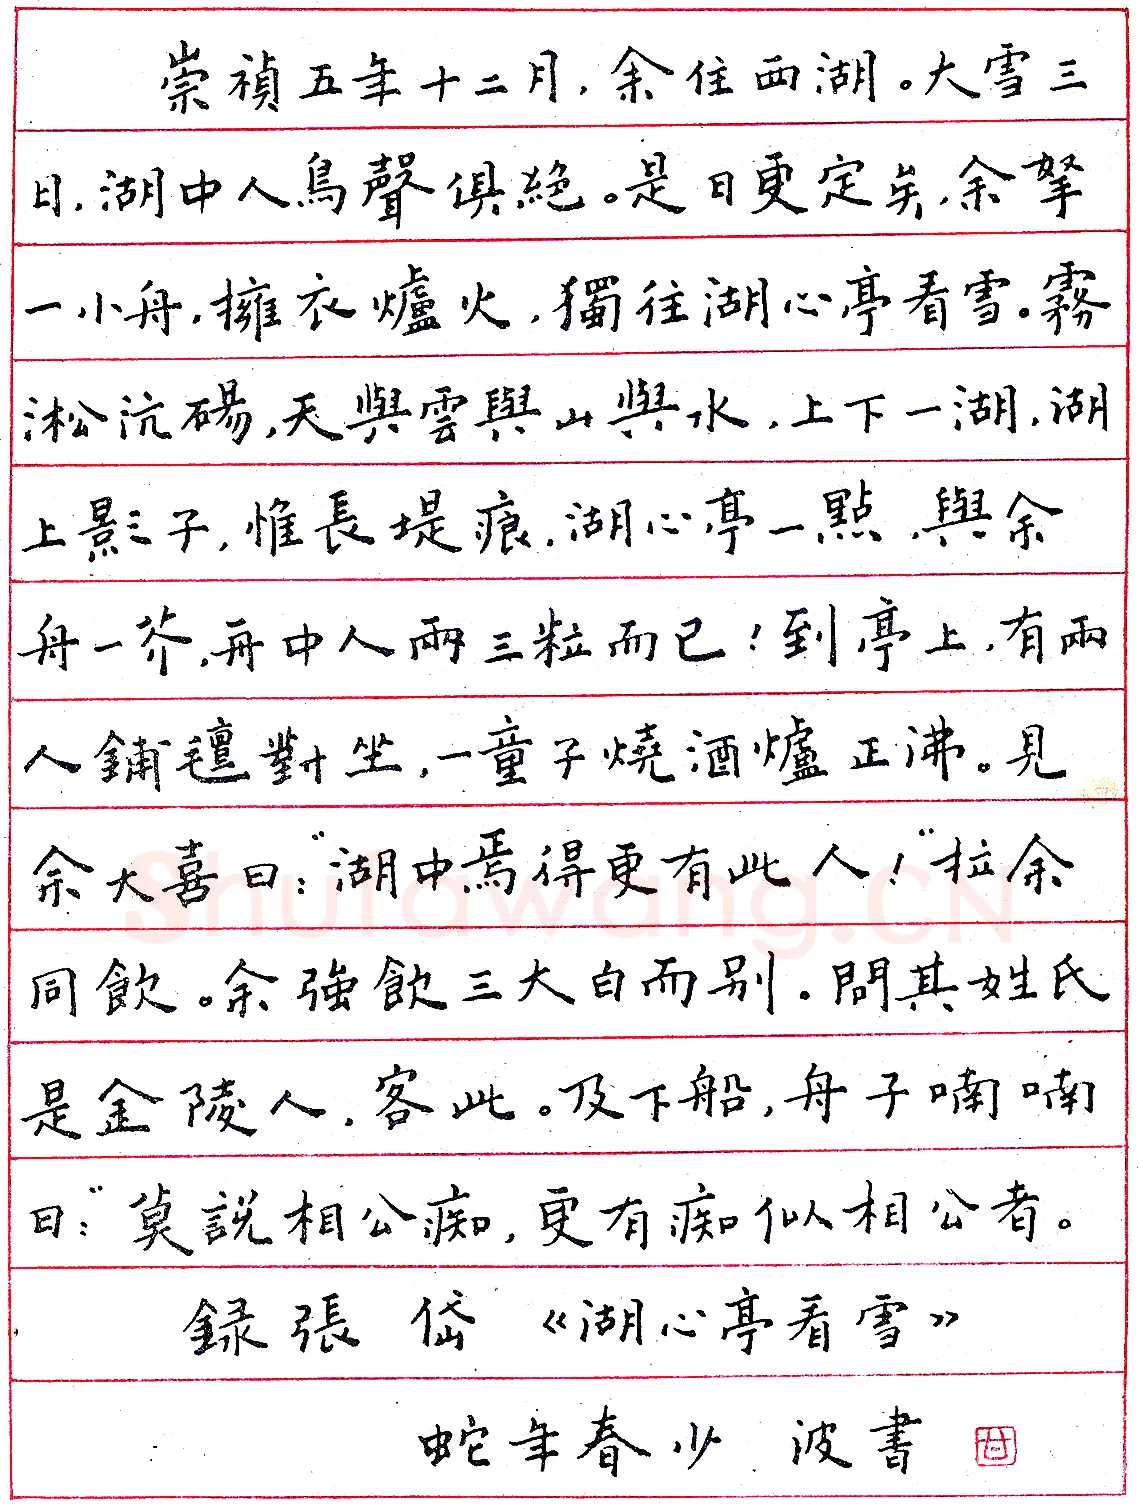 崇禎五年十二月，余住西湖。大雪三
日，湖中人鳥聲俱絶。是日更定矣，余拏
一小舟，擁衣爐火，獨往湖心亭看雪。霧
淞沆碭，天與雲與山與水，上下一湖，湖
上影子，惟長堤痕，湖心亭一點，與余
舟一芥，舟中人兩三粒而已！到亭上，有兩
人鋪氊對坐，一童子燒酒爐正沸。見
余大喜曰：“湖中焉得更有此人！”拉余
同飲。余強飲三大白而别。問其姓氏
是金陵人，客此。及下船，舟子喃喃
曰：“莫説相公痴，更有痴似相公者。
録張岱《湖心亭看雪》
蛇年春少波書
甘
Shufawang.CN